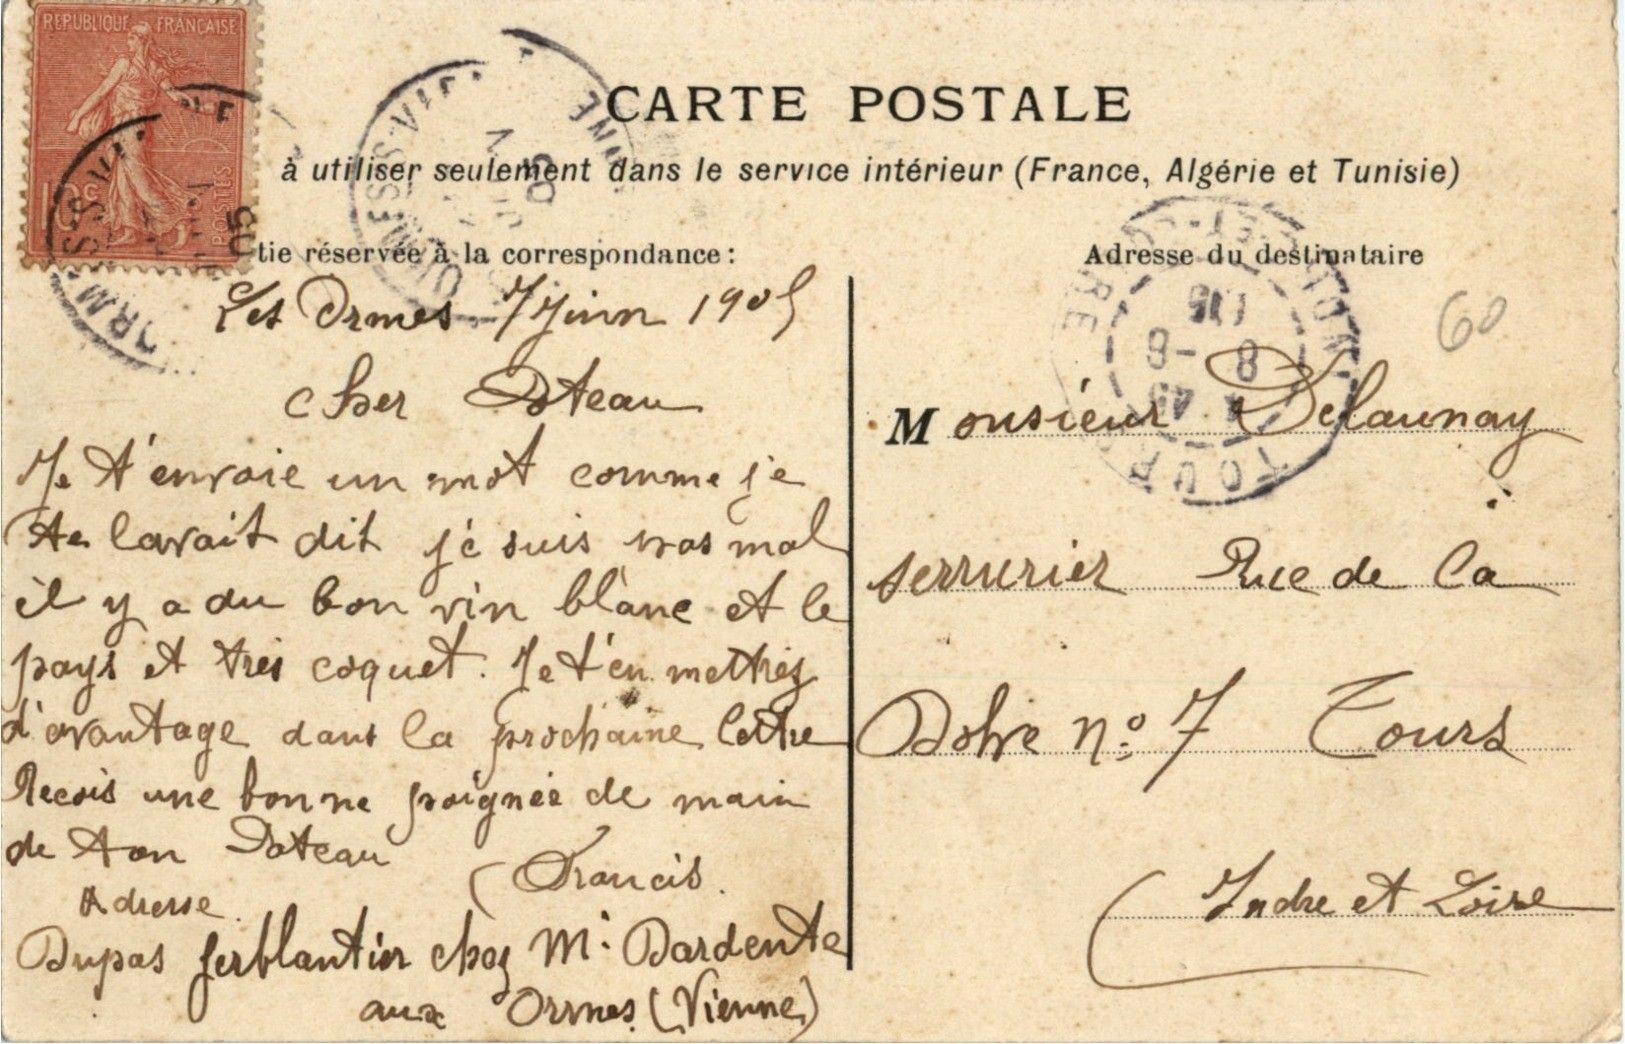 REPUBLIQUE FRANÇAISE
10c
POSTES
CARTE POSTALE
à utiliser seulement dans le service intérieur (France, Algérie et Tunisie)
tie réservée à la correspondance :
Les Ormes 7 Juin 1905
cher Poteau
Je t'envoie un mot comme je
te lavait dit je suis pas mal
il y a du bon vin blanc et le
pays et très coquet. Je t'en mettrez
d'avantage dans la prochaine lettre
Recois une bonne poignée de main
de ton Poteau
Francis.
Adresse.
Dupas ferblantier chez Mr Dardente
aux Ormes (Vienne)
Adresse du destinataire
60
Monsieur Delaunay
serrurier Rue de la
Dolve no. 7 Tours
Indre et Loire
TOURS